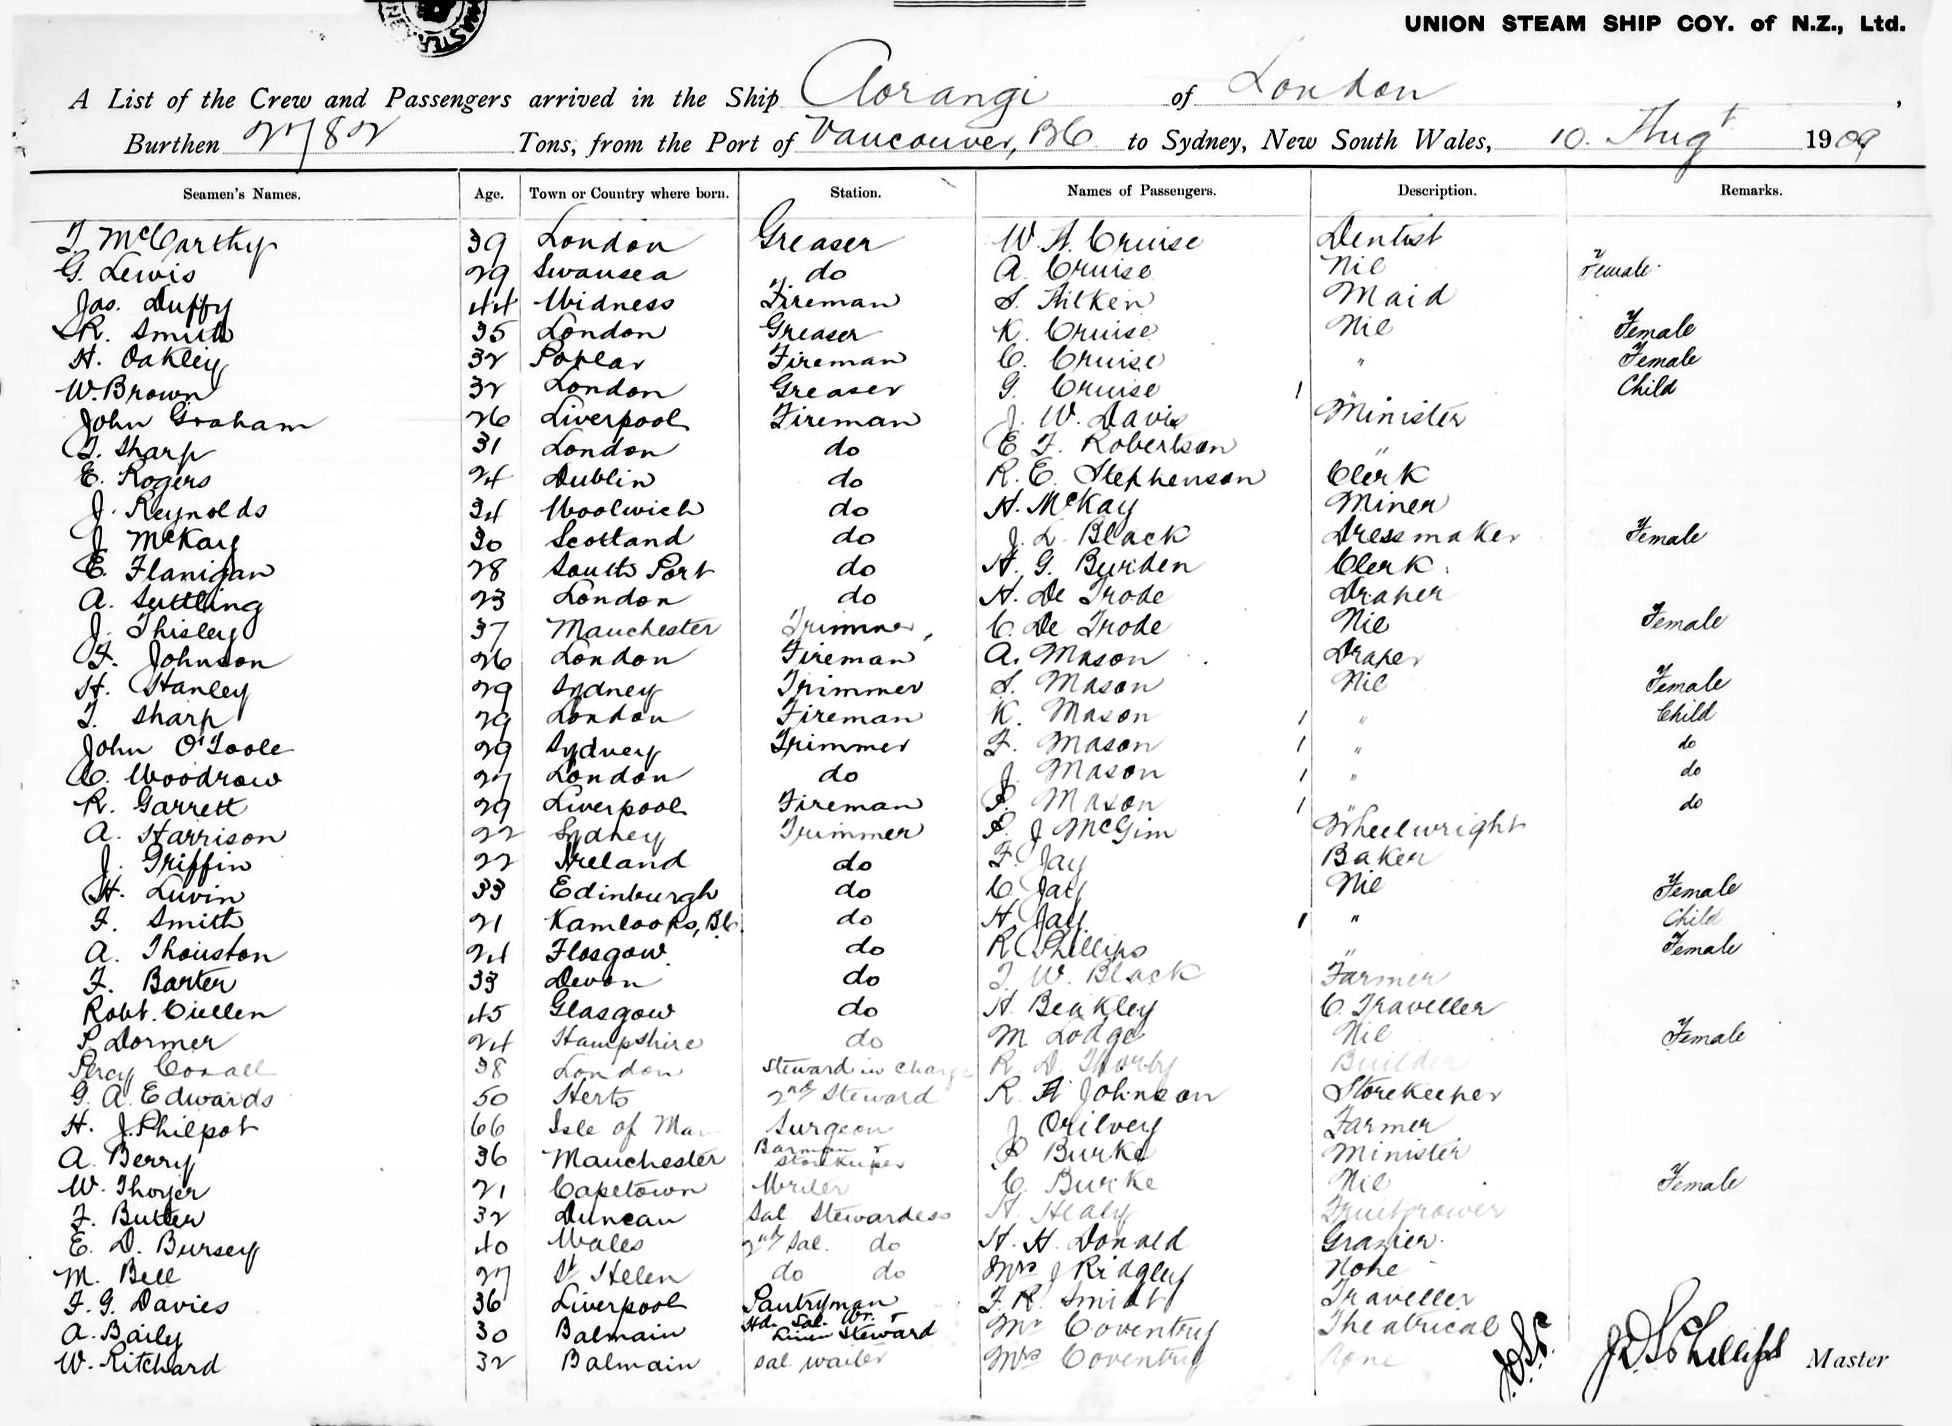 UNION STEAM SHIP COY. of N.Z., Ltd.
A List of the Crew and Passengers arrived in the Ship Aorangi of London,
Burthen 2782 Tons, from the Port of Vancouver, BC to Sydney, New South Wales, 10. Augt 1909
Seamen's Names. Age. Town or Country where born. Station. Names of Passengers. Description. Remarks.
T McCarthy 39 London Greaser W. A. Cruise Dentist
G. Lewis 29 Swansea do A. Cruise Nil Female
Jas. Duffy 44 Widness Fireman S. Aitken Maid
R. Smith 35 London Greaser K. Cruise Nil Female
H. Oakley 32 Poplar Fireman C. Cruise " Female
W. Brown 32 London Greaser G. Cruise 1 " Child
John Graham 26 Liverpool Fireman J. W. Davis Minister
T. Sharp 31 London do E T. Robertson "
E. Rogers 24 Dublin do R. E. Stephenson Clerk
J. Reynolds 34 Woolwich do H. McKay Miner
J McKay 30 Scotland do J. L. Black Dressmaker Female
E. Flanigan 28 South Port do H. G. Burden Clerk.
A. Suttling 23 London do H. De Trode Draper
J. Thisley 37 Manchester Trimmer, C. De Trode Nil Female
F. Johnson 26 London Fireman A. Mason Draper
H. Stanley 29 Sydney Trimmer S. Mason Nil Female
T. Sharp 29 London Fireman K. Mason 1 " Child
John O'Toole 29 Sydney Trimmer F. Mason 1 " do
C. Woodrow 27 London do J. Mason 1 " do
R. Garrett 29 Liverpool Fireman P. Mason 1 " do
A. Harrison 22 Sydney Trimmer P. J McGim Wheelwright
J. Griffin 22 Ireland do F. Jay Baker
H. Luvin 33 Edinburgh do C Jay Nil Female
F. Smith 21 Kamloops, B.C. do H. Jay 1 " Child
A. Thouston 24 Flosgow. do R Phillips " Female
F. Barter 33 Devon do T. W. Black Farmer
Robt. Cullen 45 Glasgow do H Beakley C. Traveller
P. Dormer 24 Hampshire do M Lodge Nil Female
Percy Coxall 38 London Steward in Charge R. D. Thorby Builder
G. A. Edwards 50 Herts 2nd Steward R A Johnson Storekeeper
H. J. Philpot 66 Isle of Man Surgeon J Ogilvey Farmer
A. Berry 36 Manchester Barman & Storekeeper P Burke Minister
W. Thoyer 21 Capetown Writer C. Burke Nil Female
F. Butler 32 Duncan Sal Stewardess H. Healy Fruitgrower
E. D. Bursey 40 Wales 2nd Sal. do H. H. Donald Grazier.
M. Bell 27 St Helen do do Mrs J Ridgley None
F. G. Davies 36 Liverpool Pantryman F. R. Smidt Traveller
A. Baily 30 Balmain Hd. Sal. Wr. & Linen Steward Mr Coventry Theatrical
W. Ritchard 32 Balmain Sal waiter Mrs Coventry None
J D S Phillips Master